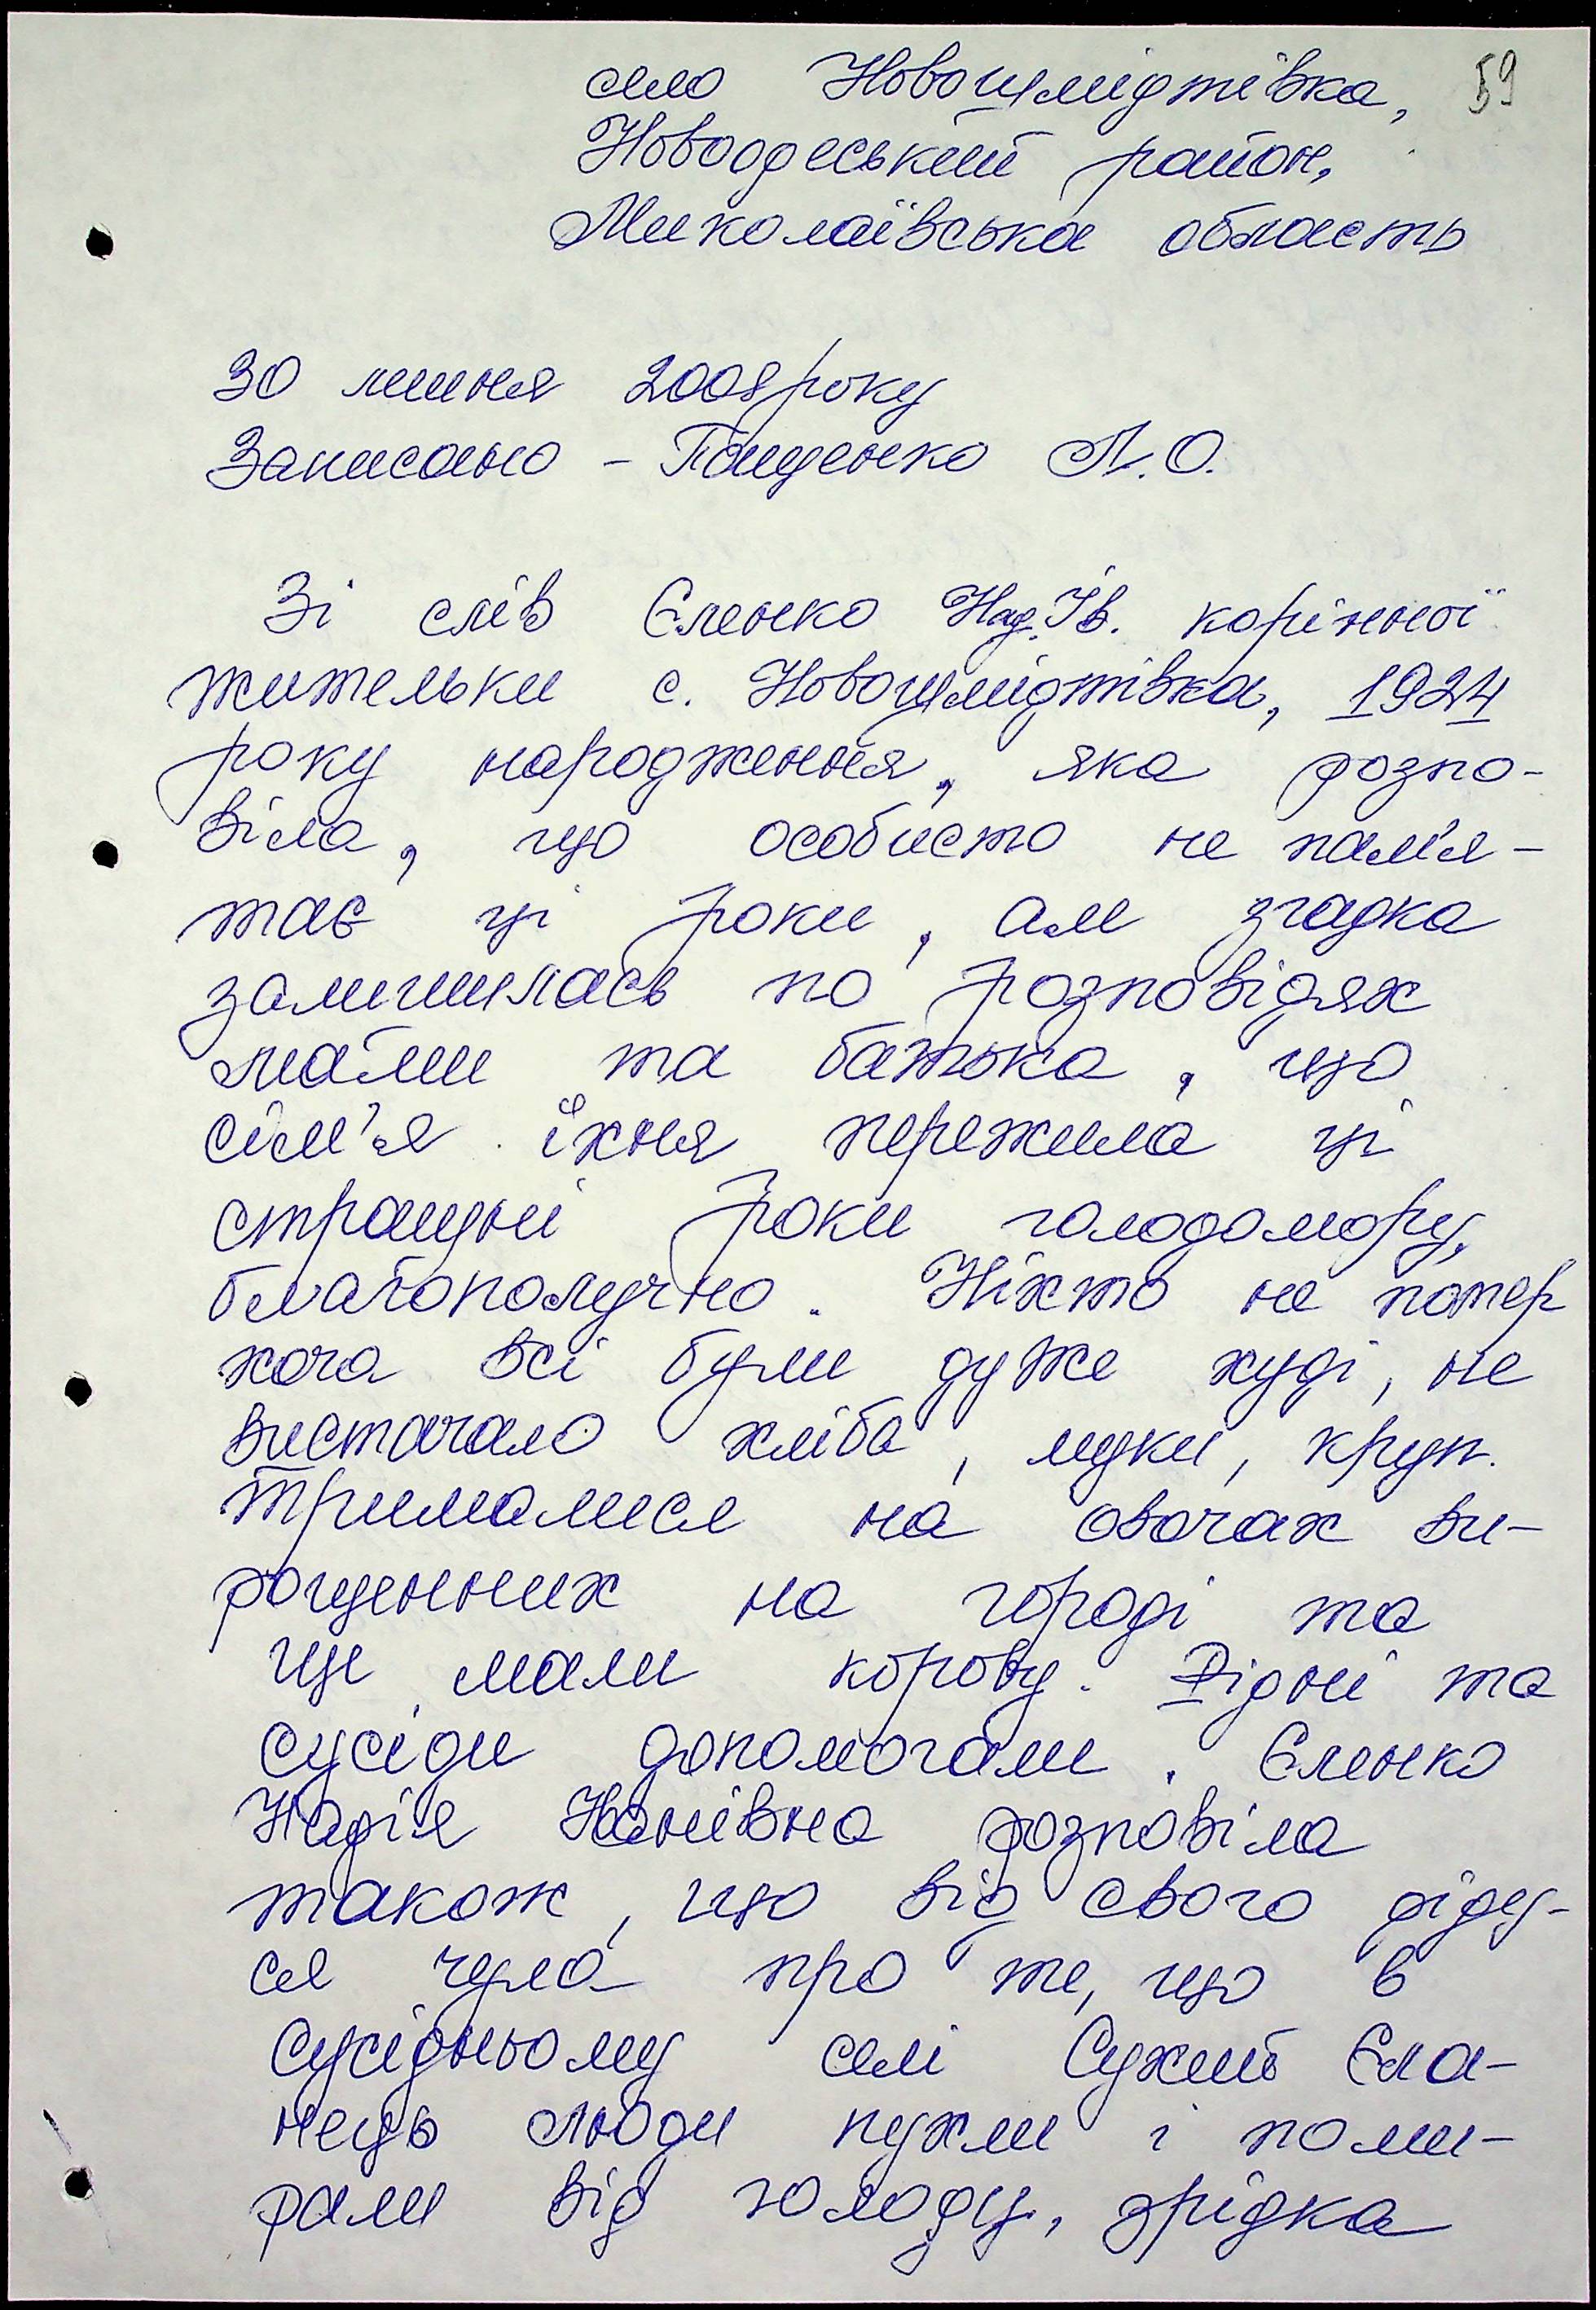 село Новошмідтівка, 59
Новоодеський район,
Миколаївська область
30 липня 2008 року
Записано - Пащенко Л.О.
Зі слів Єленко Над.Ів. корінної
жительки с. Новошмідтівка, 1924
року народження, яка розпо-
віла, що особисто не пам'я-
тає ці роки, але згадка
залишилась по розповідях
мами та батька, що
сім'я їхня пережила ці
страшні роки голодомору,
благополучно. Ніхто не помер
хоча всі були дуже худі, не
вистачало хліба, муки, круп.
Трималися на овочах ви-
рощенних на городі та
ще мали корову. Рідні та
сусіди допомогали. Єленко
Надія Іванівна розповіла
також, що від свого дідु-
ся чула про те, що в
сусідньому селі Сухий Єла-
нець люди пухли і поми-
рали від голоду, зрідка